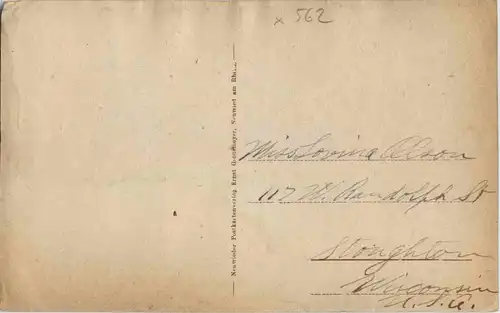 x 562
Neuwieder Postkartenverlag Ernst Neuwied am
Miss Lorina Olson
117 W. Randolph St
Stoughton
Wisconsin
U.S.A.